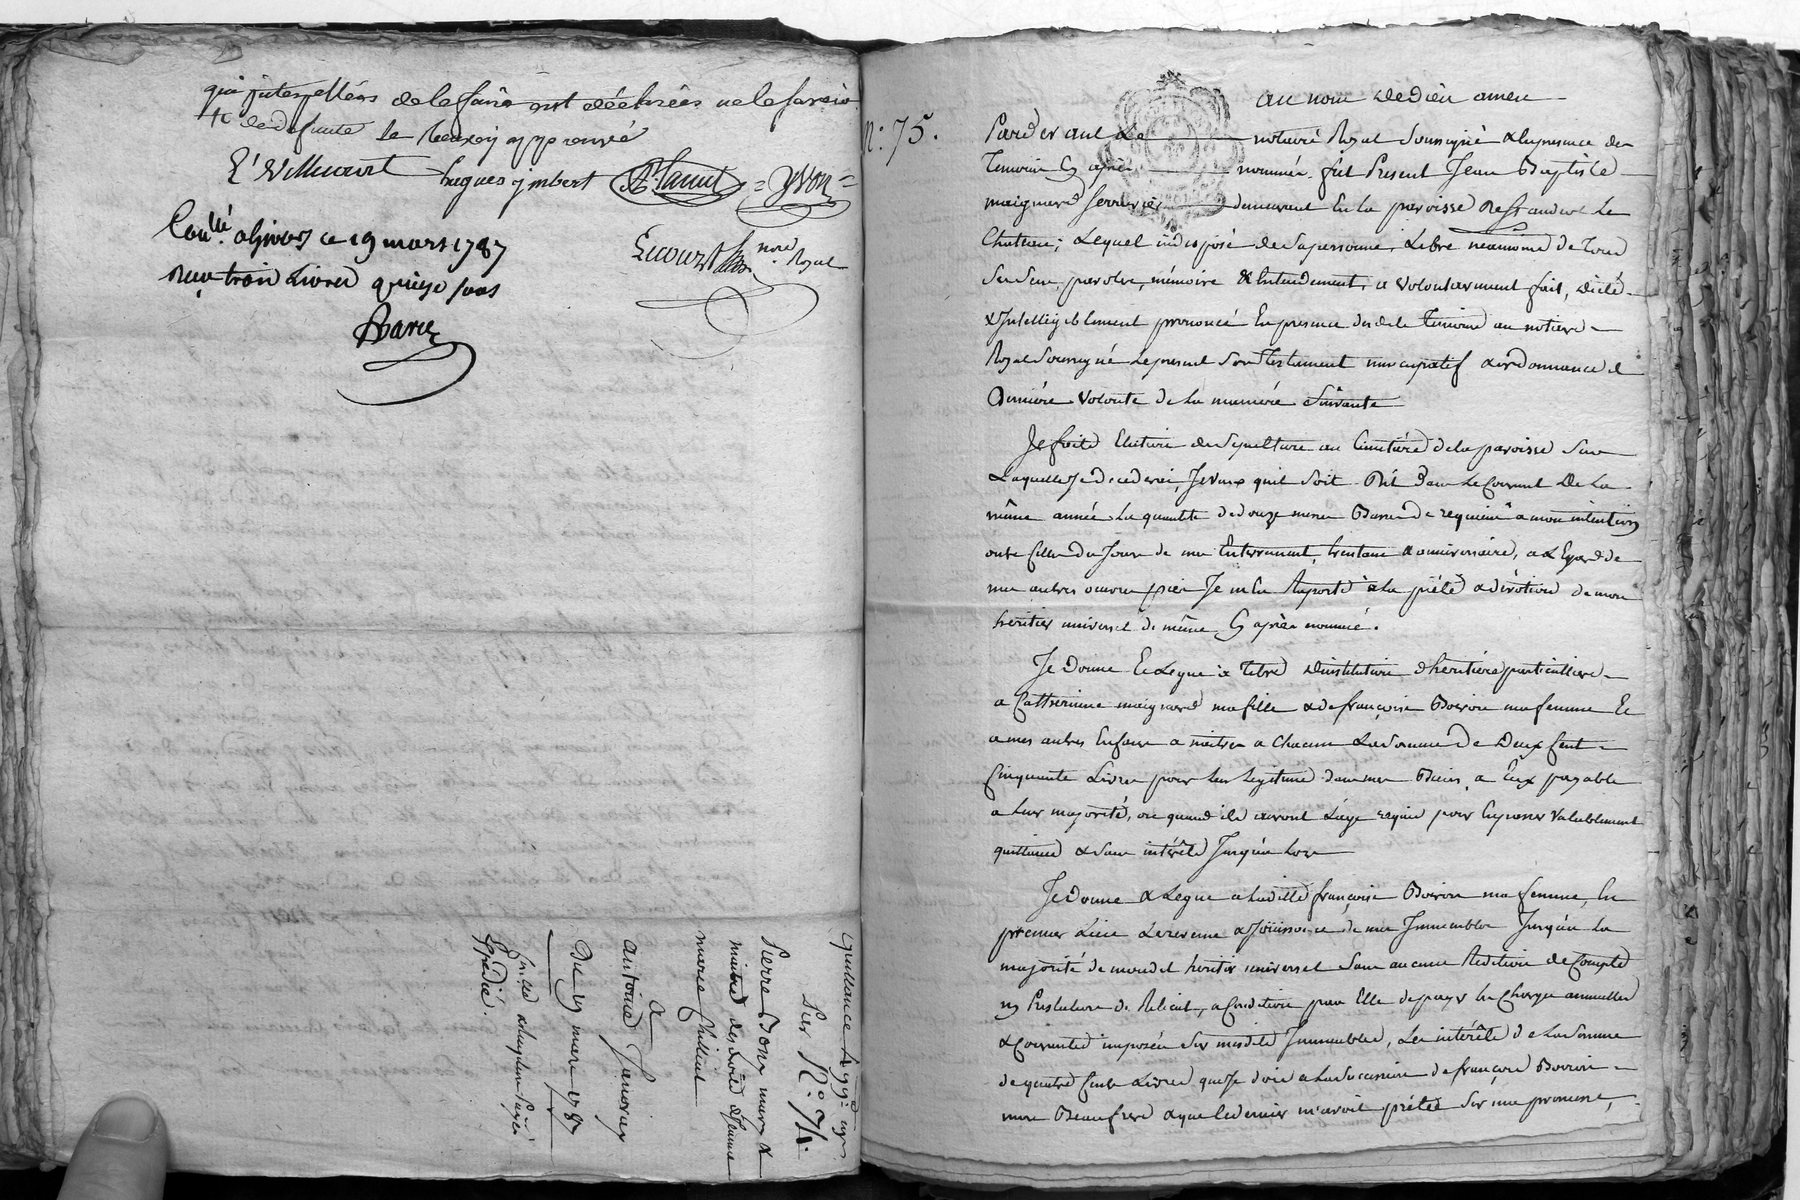 qui interpellées de le faire ont déclarées ne le savoir
de defunte le renvoy approuvé
Villecourt hugues jmbert Yvon
Con.llé a givors ce 19 mars 1787
Recu trois Livres quinze sous
not.re Royal
quittance
Sur N.o 74.
Pierre Bony
marie
A
antoine Janoray
Du 19 mars 1787
Expédié.
N.o 75.
au nom de dieu amen
Pardevant Le notaire Royal Soussigné & la presence des
Temoins Cy après nommés, fut Present Jean Baptiste
maignard serrurier demeurant En la paroisse de St andeol Le
Chateau; Lequel indisposé de sa personne, Libre néanmoins de tous
ses sens, parolre, mémoire & Entendement, a volontairement fait, dicté
& Intelligiblement prononcé En presence desdits Temoins au notaire
Royal Soussigné Le present Son Testament nuncupatif & ordonnance de
Derniére volonté de La maniére Suivante
Je fais Election de Sepulture au Cimetiére de la paroisse Sur
Laquelle je decederai, Je veux quil soit Dit Dans Le Courant De La
même année La quantité de douze messes Basses de requiem a mon intention
outre celles du Jour de mon Enterrement, trentaine & anniversaire, & a L'Egard de
mes autres oeuvres pies Je m'en Raporte à La piété & dévotion de mon
héritier universel de même Cy après nommé.
Je Donne Et Legue a titre d'institution d'heritiére particuliere
a Catherinne maignard ma fille & de françoise Boiron ma femme Et
a mes autres Enfans a naitre a Chacun La Somme De Deux Cent
Cinquante Livres pour Leur Legitime dans mes Biens, a Eux payable
a Leur majorité, ou quand ils auront L'age requis pour En passer valablement
quittance & sans intérêts Jusqu'a Lors
Je Donne & Legue a Ladite françoise Boiron ma femme, En
premier Lieu Le revenu & Jouissance de mes Immeubles Jusqu'a La
majorité de mondit heritier universel Sans aucune Reddition de Compte
ny Prestation de Relicat, a Condition par Elle de payer Les Charges annuelles
& Courantes imposées Sur mesdits Immeubles, Les intérêts de La Somme
de quatre Cents Livres que Je Dois a La Succession de françois Boiron
mon Beaufrere & que ce dernier m'avoit prêtée Sur ma promesse,